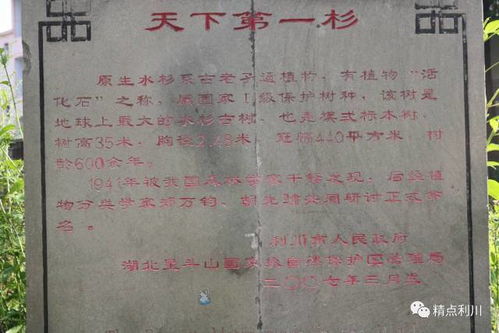 天下第一杉
原生水杉系古老孑遗植物，有植物“活
化石”之称，属国家I级保护树种，该树是
地球上最大的水杉古树，也是模式标本树，
树高35米，胸径2.48米，冠幅440平方米，树
龄600余年。
1941年被我国森林学家干铎发现，后经植
物分类学家郑万钧、胡先骕共同研讨正式命
名。
利川市人民政府
湖北星斗山国家级自然保护区管理局
二〇〇七年三月立
精点利川